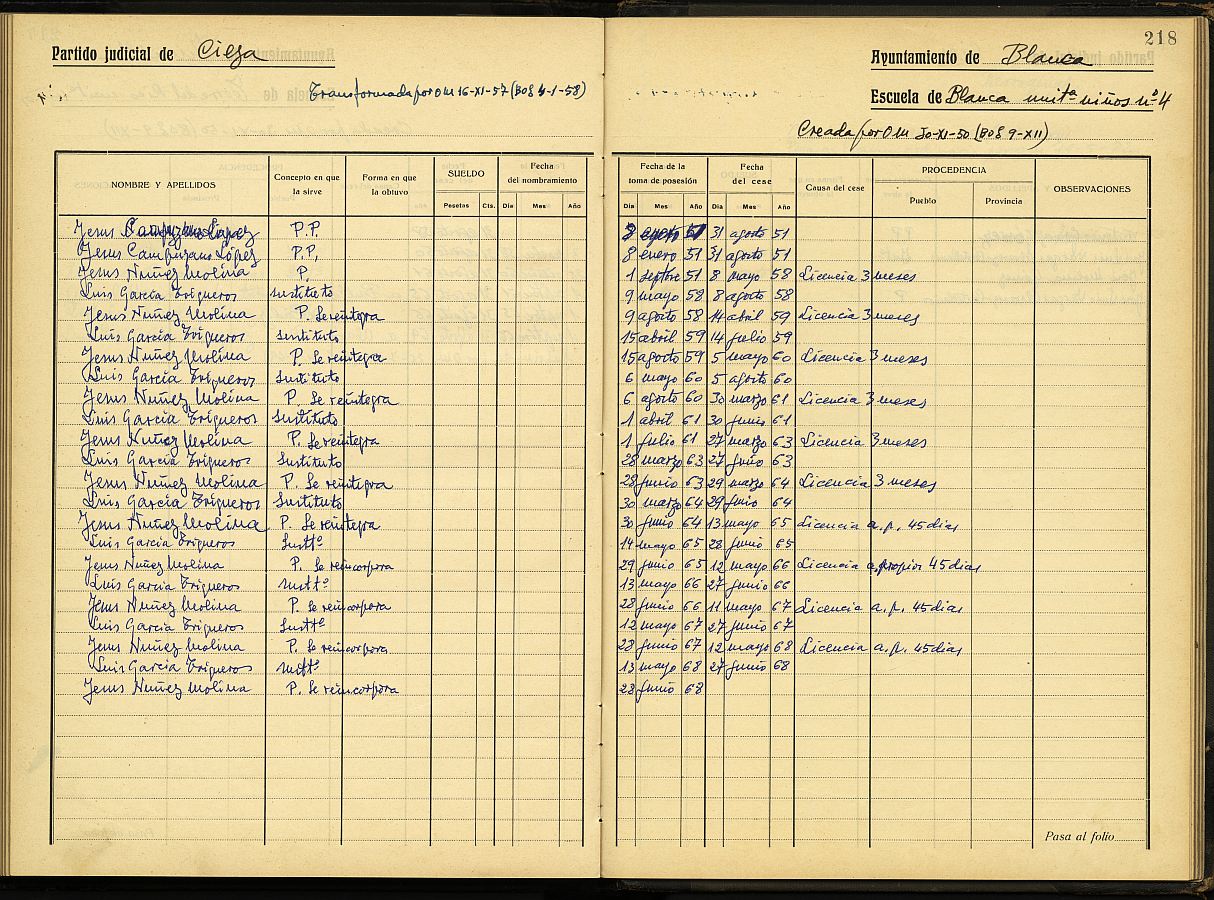 218
Partido judicial de Cieza
Ayuntamiento de Blanca
Transformada por OM 16-XI-57 (BOE 4-1-58)
Escuela de Blanca unitª niños nº 4
Creada por OM 30-XI-50 (BOE 9-XII)
NOMBRE Y APELLIDOS Concepto en que la sirve Forma en que la obtuvo SUELDO Pesetas Cts. Fecha del nombramiento Día Mes Año Fecha de la toma de posesión Día Mes Año Fecha del cese Día Mes Año Causa del cese PROCEDENCIA Pueblo Provincia OBSERVACIONES
Jesus Campuzano López P.P. 8 enero 51 31 agosto 51
Jesus Campuzano López P.P. 8 enero 51 31 agosto 51
Jesus Nuñez Molina P. 1 septbre 51 8 mayo 58 Licencia 3 meses
Luis García Trigueros sustituto 9 mayo 58 8 agosto 58
Jesus Nuñez Molina P. Se reintegra 9 agosto 58 14 abril 59 Licencia 3 meses
Luis García Trigueros Sustituto 15 abril 59 14 julio 59
Jesus Nuñez Molina P. Se reintegra 15 agosto 59 5 mayo 60 Licencia 3 meses
Luis García Trigueros Sustituto 6 mayo 60 5 agosto 60
Jesus Nuñez Molina P. Se reintegra 6 agosto 60 30 marzo 61 Licencia 3 meses
Luis García Trigueros Sustituto 1 abril 61 30 junio 61
Jesus Nuñez Molina P. Se reintegra 1 julio 61 27 marzo 63 Licencia 3 meses
Luis García Trigueros Sustituto 28 marzo 63 27 junio 63
Jesus Nuñez Molina P. Se reintegra 28 junio 63 29 marzo 64 Licencia 3 meses
Luis García Trigueros Sustituto 30 marzo 64 29 junio 64
Jesus Nuñez Molina P. Se reintegra 30 junio 64 13 mayo 65 Licencia a. p. 45 dias
Luis García Trigueros Susttº 14 mayo 65 28 junio 65
Jesus Nuñez Molina P. Se reincorpora 29 junio 65 12 mayo 66 Licencia a. propios 45 dias
Luis García Trigueros susttº 13 mayo 66 27 junio 66
Jesus Nuñez Molina P. Se reincorpora 28 junio 66 11 mayo 67 Licencia a. p. 45 dias
Luis García Trigueros Susttº 12 mayo 67 27 junio 67
Jesus Nuñez Molina P. Se reincorpora 28 junio 67 12 mayo 68 Licencia a. p. 45 dias
Luis García Trigueros susttº 13 mayo 68 27 junio 68
Jesus Nuñez Molina P. Se reincorpora 28 junio 68
Pasa al folio